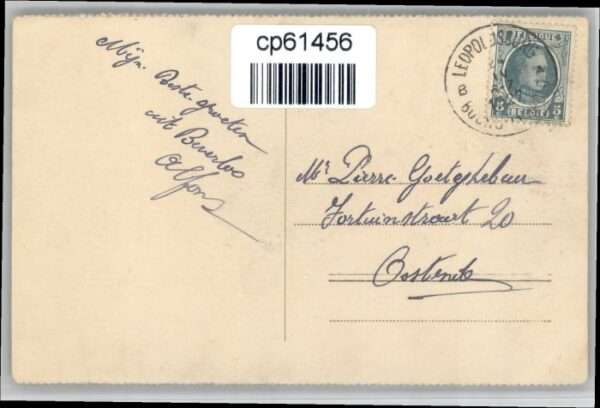 cp61456
Mijn Beste groeten
uit Beverloo
Alfons
LEOPOLDSBURG
B
BELGIË 5
Mr Pierre Goetghebeur
Fortuinstraat 20
Oostende